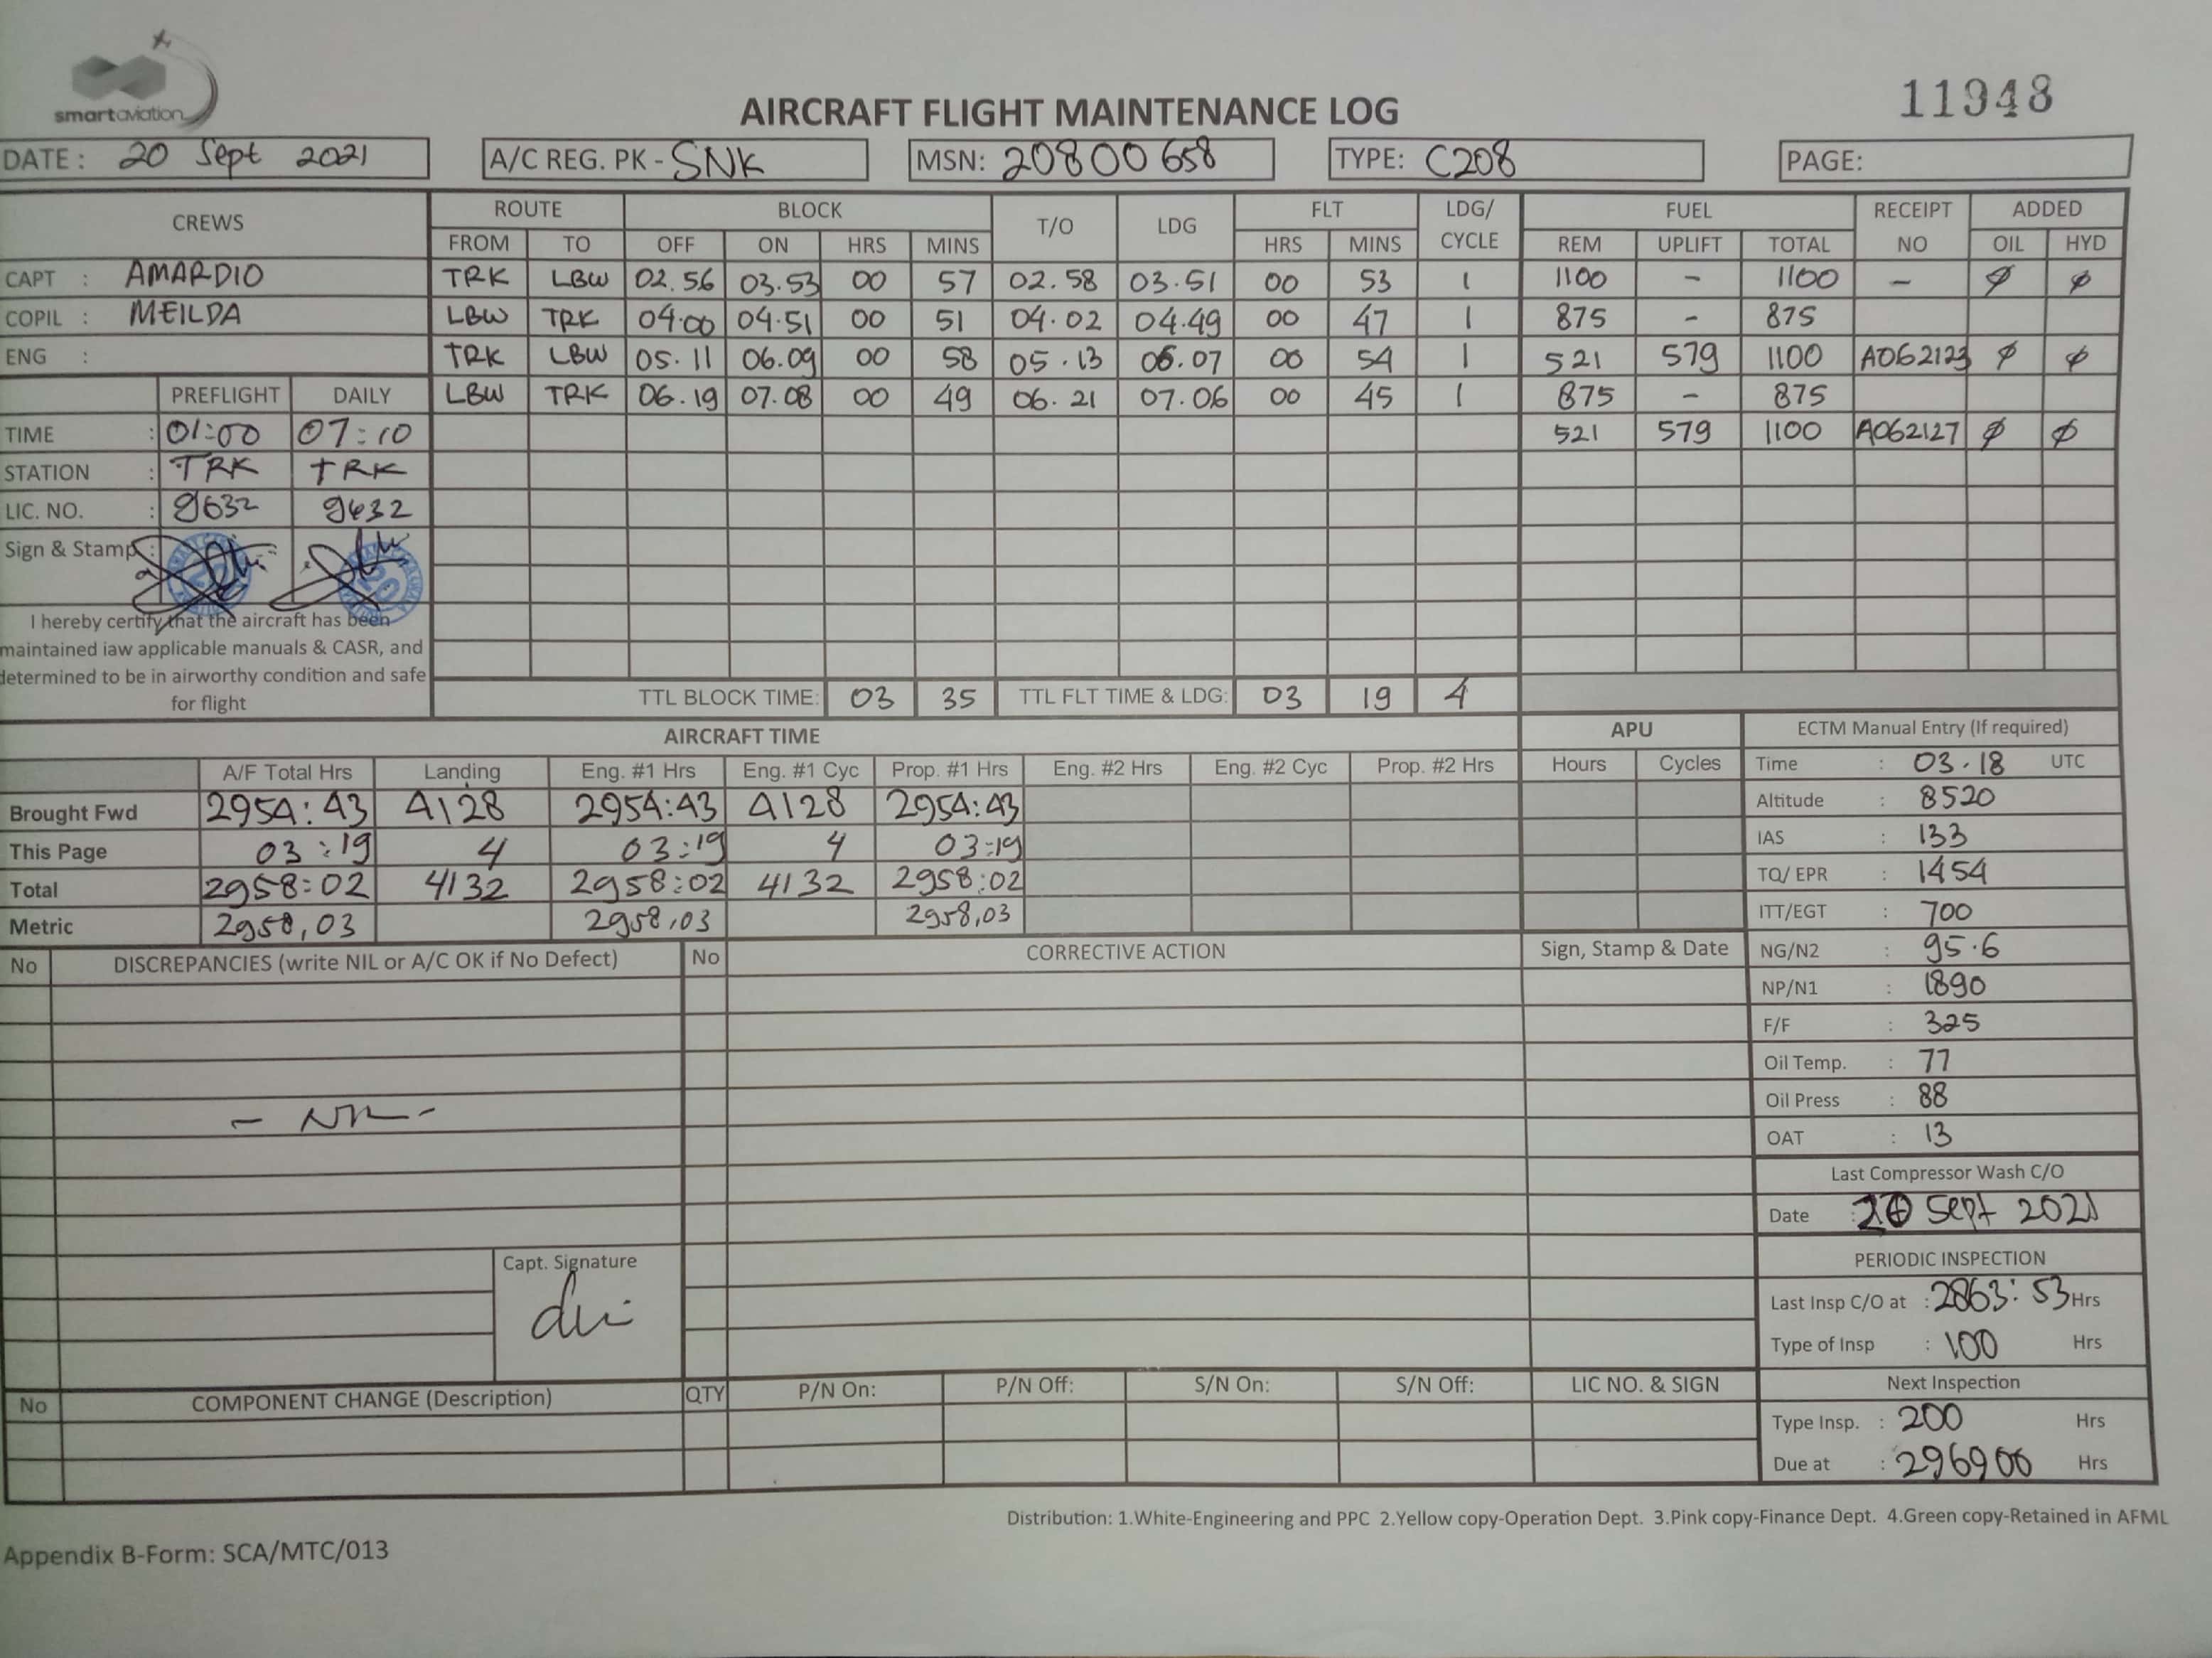 smartaviation
11948
AIRCRAFT FLIGHT MAINTENANCE LOG
DATE : 20 Sept 2021 A/C REG. PK - SNK MSN: 20800658 TYPE: C208 PAGE:
CREWS ROUTE BLOCK T/O LDG FLT LDG/ CYCLE FUEL RECEIPT NO ADDED
FROM TO OFF ON HRS MINS HRS MINS REM UPLIFT TOTAL OIL HYD
CAPT : AMARDIO TRK LBW 02.56 03.53 00 57 02.58 03.51 00 53 1 1100 - 1100 - ∅ ∅
COPIL : MEILDA LBW TRK 04.00 04.51 00 51 04.02 04.49 00 47 1 875 - 875
ENG : TRK LBW 05.11 06.09 00 58 05.13 06.07 00 54 1 521 579 1100 A062123 ∅ ∅
PREFLIGHT DAILY LBW TRK 06.19 07.08 00 49 06.21 07.06 00 45 1 875 - 875
TIME : 01:00 07:10 521 579 1100 A062127 ∅ ∅
STATION : TRK TRK
LIC. NO. : 9632 9632
Sign & Stamp :
20 20
I hereby certify that the aircraft has been
maintained iaw applicable manuals & CASR, and
determined to be in airworthy condition and safe
for flight
TTL BLOCK TIME: 03 35 TTL FLT TIME & LDG: 03 19 4
AIRCRAFT TIME APU ECTM Manual Entry (If required)
A/F Total Hrs Landing Eng. #1 Hrs Eng. #1 Cyc Prop. #1 Hrs Eng. #2 Hrs Eng. #2 Cyc Prop. #2 Hrs Hours Cycles Time : 03.18 UTC
Brought Fwd 2954:43 4128 2954:43 4128 2954:43 Altitude : 8520
This Page 03:19 4 03:19 4 03:19 IAS : 133
Total 2958:02 4132 2958:02 4132 2958:02 TQ/ EPR : 1454
Metric 2958,03 2958,03 2958,03 ITT/EGT : 700
No DISCREPANCIES (write NIL or A/C OK if No Defect) No CORRECTIVE ACTION Sign, Stamp & Date NG/N2 : 95.6
NP/N1 : 1890
F/F : 325
Oil Temp. : 77
- NIL - Oil Press : 88
OAT : 13
Last Compressor Wash C/O
Date : Sept 2021
Capt. Signature PERIODIC INSPECTION
Last Insp C/O at : 2863:53 Hrs
Type of Insp : 100 Hrs
No COMPONENT CHANGE (Description) QTY P/N On: P/N Off: S/N On: S/N Off: LIC NO. & SIGN Next Inspection
Type Insp. : 200 Hrs
Due at : 296900 Hrs
Distribution: 1.White-Engineering and PPC 2.Yellow copy-Operation Dept. 3.Pink copy-Finance Dept. 4.Green copy-Retained in AFML
Appendix B-Form: SCA/MTC/013